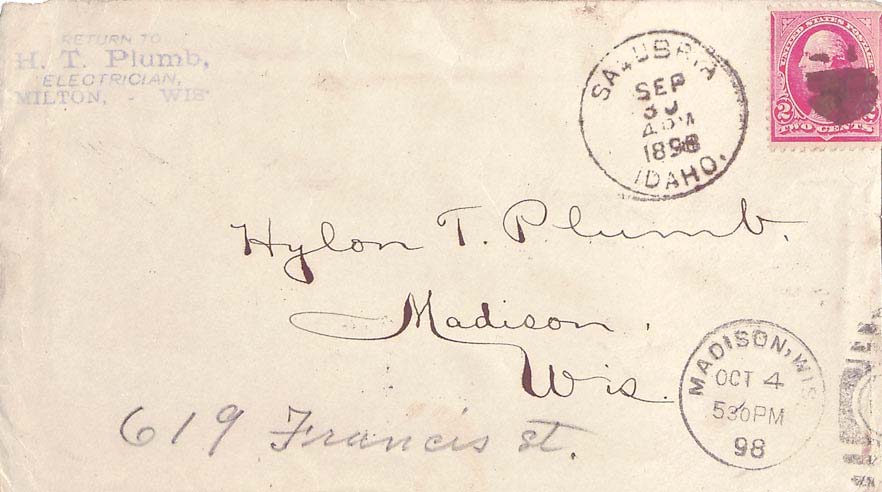 RETURN TO
H. T. Plumb,
ELECTRICIAN,
MILTON, - WIS
SALUBRIA
SEP
30
4 PM
1898
IDAHO.
UNITED STATES POSTAGE
2 2
TWO CENTS
Hylon T. Plumb.
Madison,
Wis.
619 Francis st.
MADISON, WIS.
OCT 4
530 PM
98